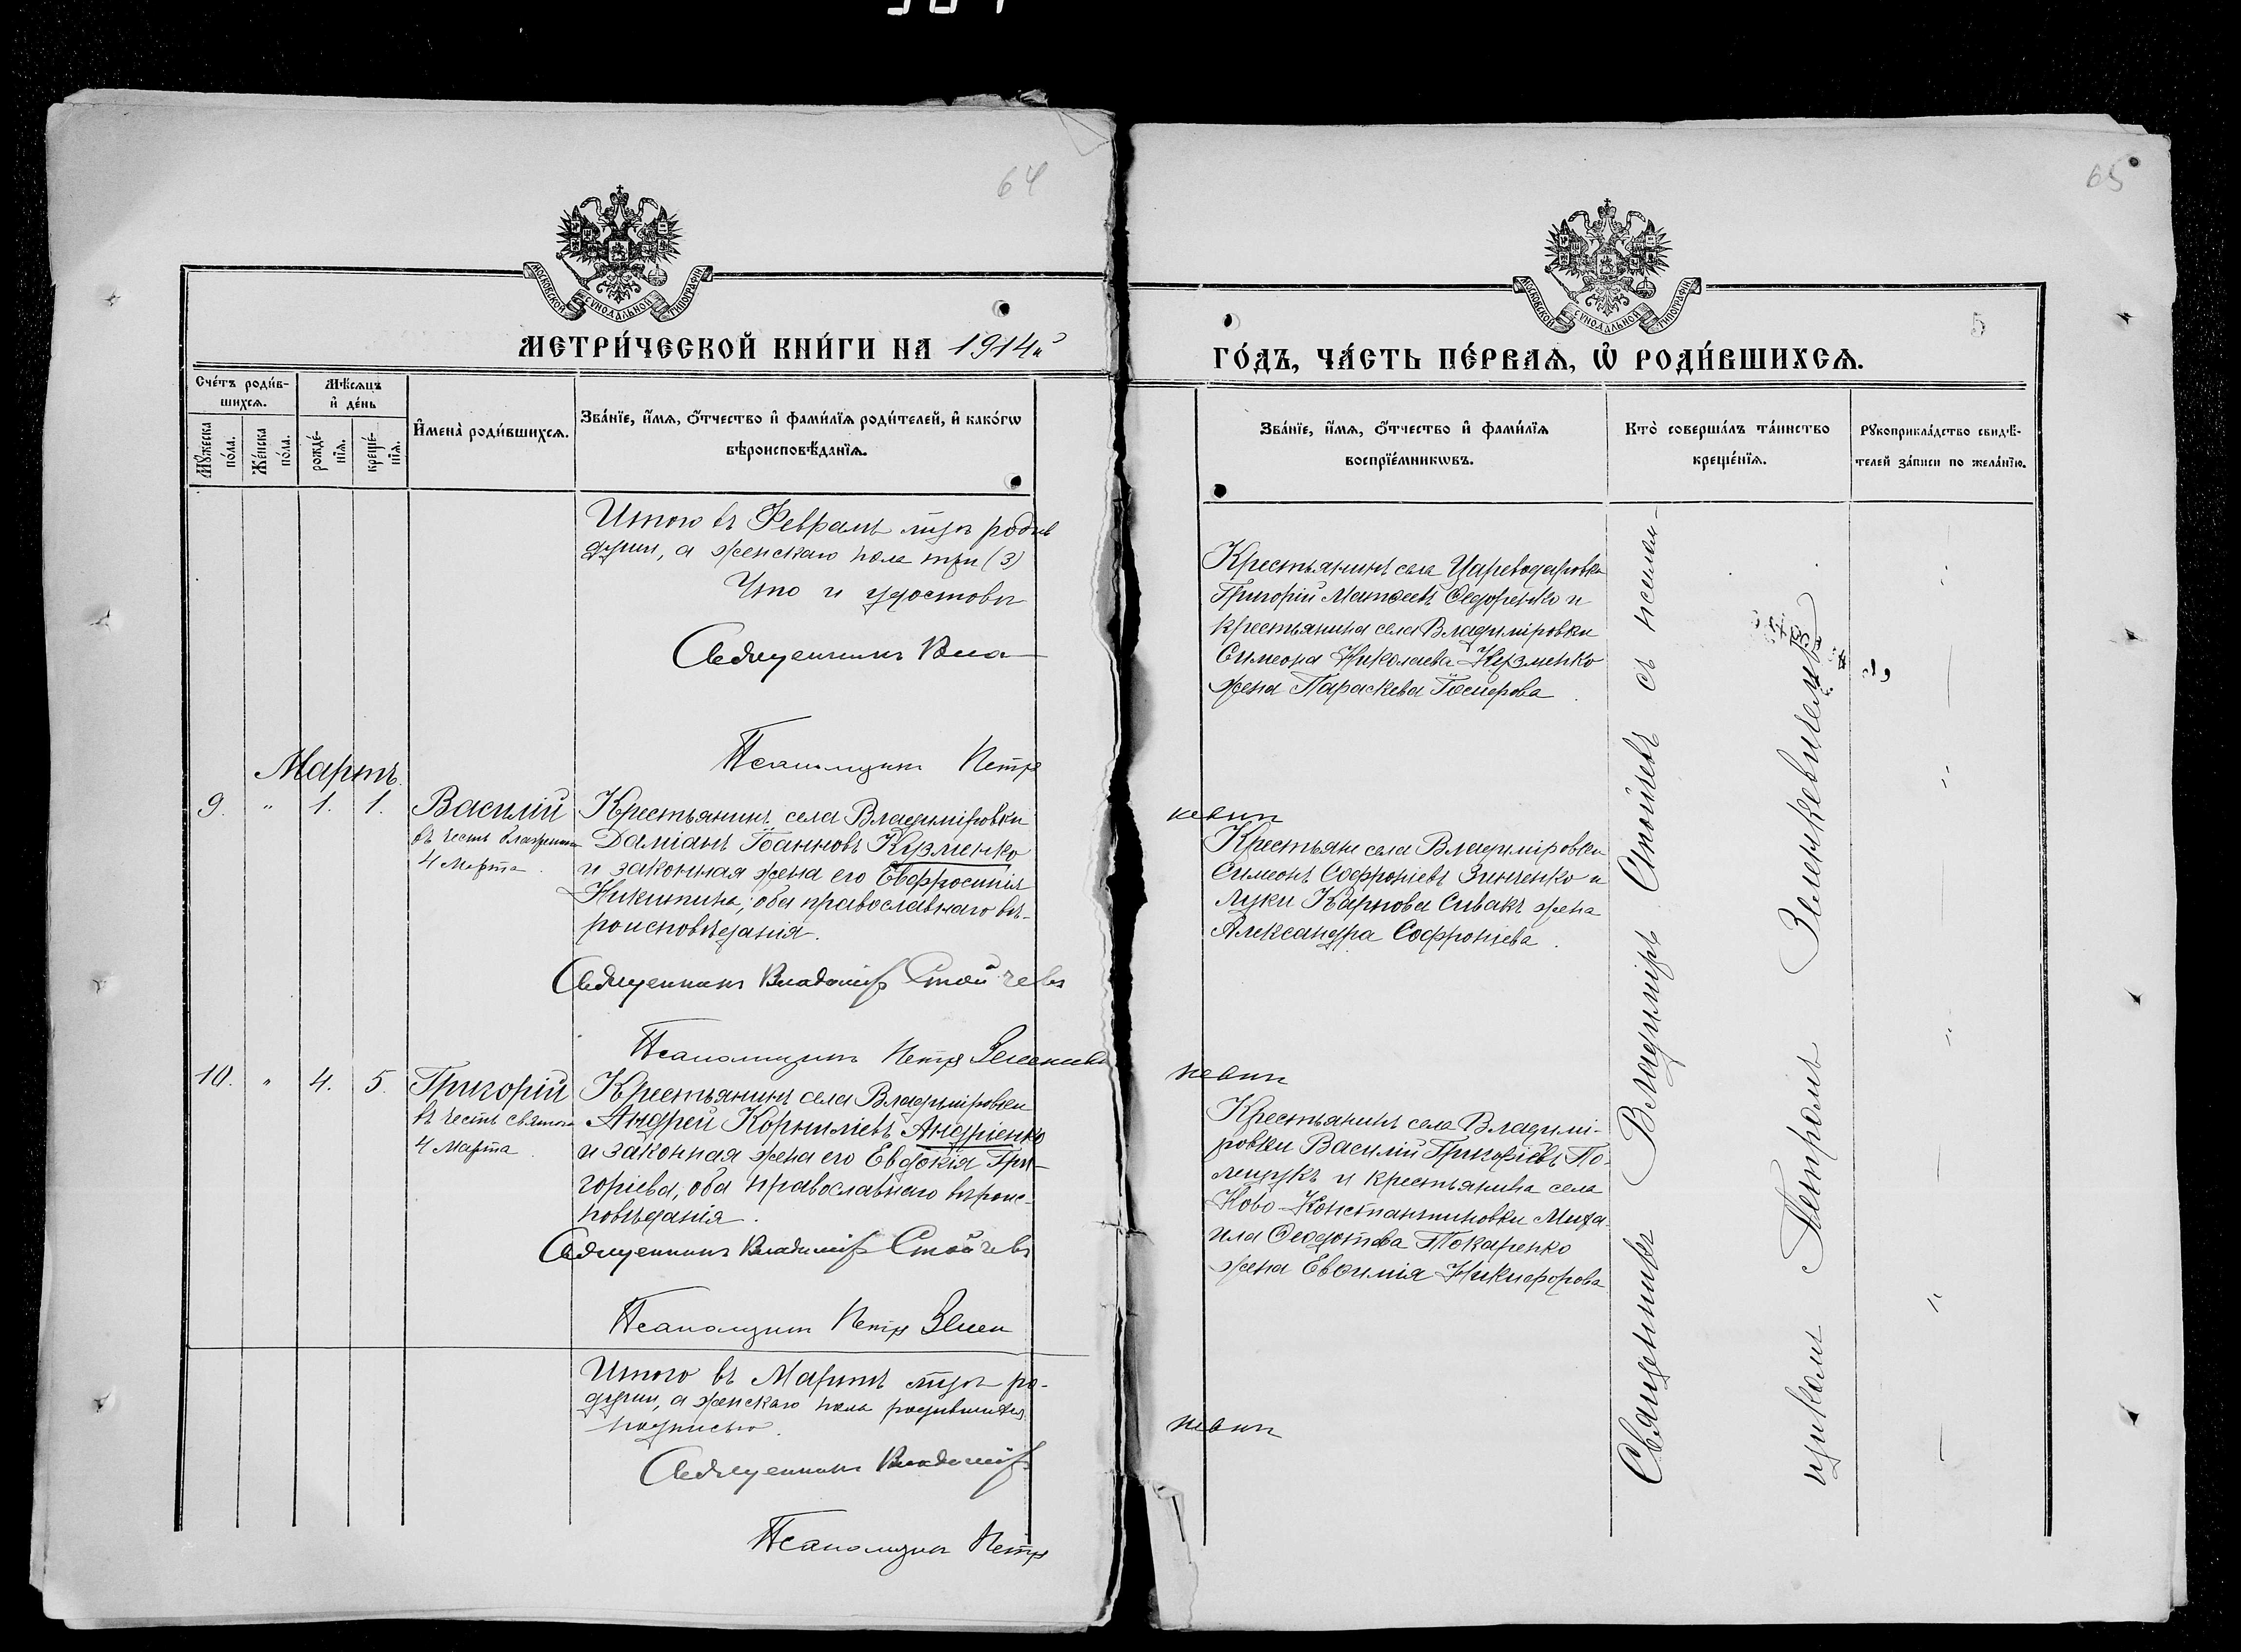 64
МОСКОВСКОЙ СУНОДАЛЬНОЙ ТИПОГРАФІИ
МЕТРИ́ЧЕСКОЙ КНИ́ГИ НА 1914й
Сче́тъ роди́в-
шихсѧ.
Мѣ́сяцъ
и҆ де́нь
Мꙋ́жеска
по́ла.
Же́нска
по́ла.
рожде́-
нїѧ.
креще́-
нїѧ.
И҆мена̀ роди́вшихсѧ.
Зва́нїе, и҆́мѧ, ѻ҆́тчество и҆ фами́лїѧ роди́телей, и҆ како́гѡ
вѣроисповѣ́данїѧ.
Итого въ Февралѣ родив
души, а женскаго пола три (3)
Что и удостовѣ
Священникъ Вла
Псаломщикъ Петръ
Мартъ.
9. " 1. 1. Василій
въ честь
4 Марта.
Крестьянинъ села Владиміровки
Даміанъ Іоанновъ Кузменко
и законная жена его Евфросинія
Никитина; оба православнаго вѣ-
роисповѣданія.
Священникъ Владиміръ Стойчевъ
Псаломщикъ Петръ Зеленкеви
10. " 4. 5. Григорій
въ честь святого
4 Марта.
Крестьянинъ села Владиміровки
Андрей Корниліевъ Андріенко
и законная жена его Евдокія Гри-
горіева, оба православнаго вѣроис-
повѣданія.
Священникъ Владиміръ Стойчевъ
Псаломщикъ Петръ Зелен
Итого въ Мартѣ ро-
души, а женскаго пола родившихся
подписью.
Священникъ Владиміръ
Псаломщикъ Петръ
65
МОСКОВСКОЙ СУНОДАЛЬНОЙ ТИПОГРАФІИ
5
ГО́ДЪ, ЧА́СТЬ ПЕ́РВАѦ, Ѡ҆ РОДИ́ВШИХСѦ.
Зва́нїе, и҆́мѧ, ѻ҆́тчество и҆ фами́лїѧ
воспрїе́мникѡвъ.
Кто̀ соверша́лъ та́инство
креще́нїѧ.
Рꙋкоприкла́дство свидѣ́-
телей за́писи по жела́нїю.
Крестьянинъ села Цареводаровки
Григорій Матѳеевъ Ѳедоренко и
крестьянина села Владиміровки
Симеона Николаева Кузменко
жена Параскева Іосифова.
кевич
Крестьяне села Владиміровки
Симеонъ Софроніевъ Зинченко и
Луки Карпова Сивакъ жена
Александра Софроніева.
кевич
Крестьянинъ села Владимі-
ровки Василій Григоріевъ По-
лищукъ и крестьянина села
Ново-Константиновки Миха-
ила Ѳедотова Токаренко
жена Евѳимія Никифорова
кевич
Священникъ Владиміръ Стойчевъ съ псалом-
щикомъ Петромъ Зеленкевичемъ